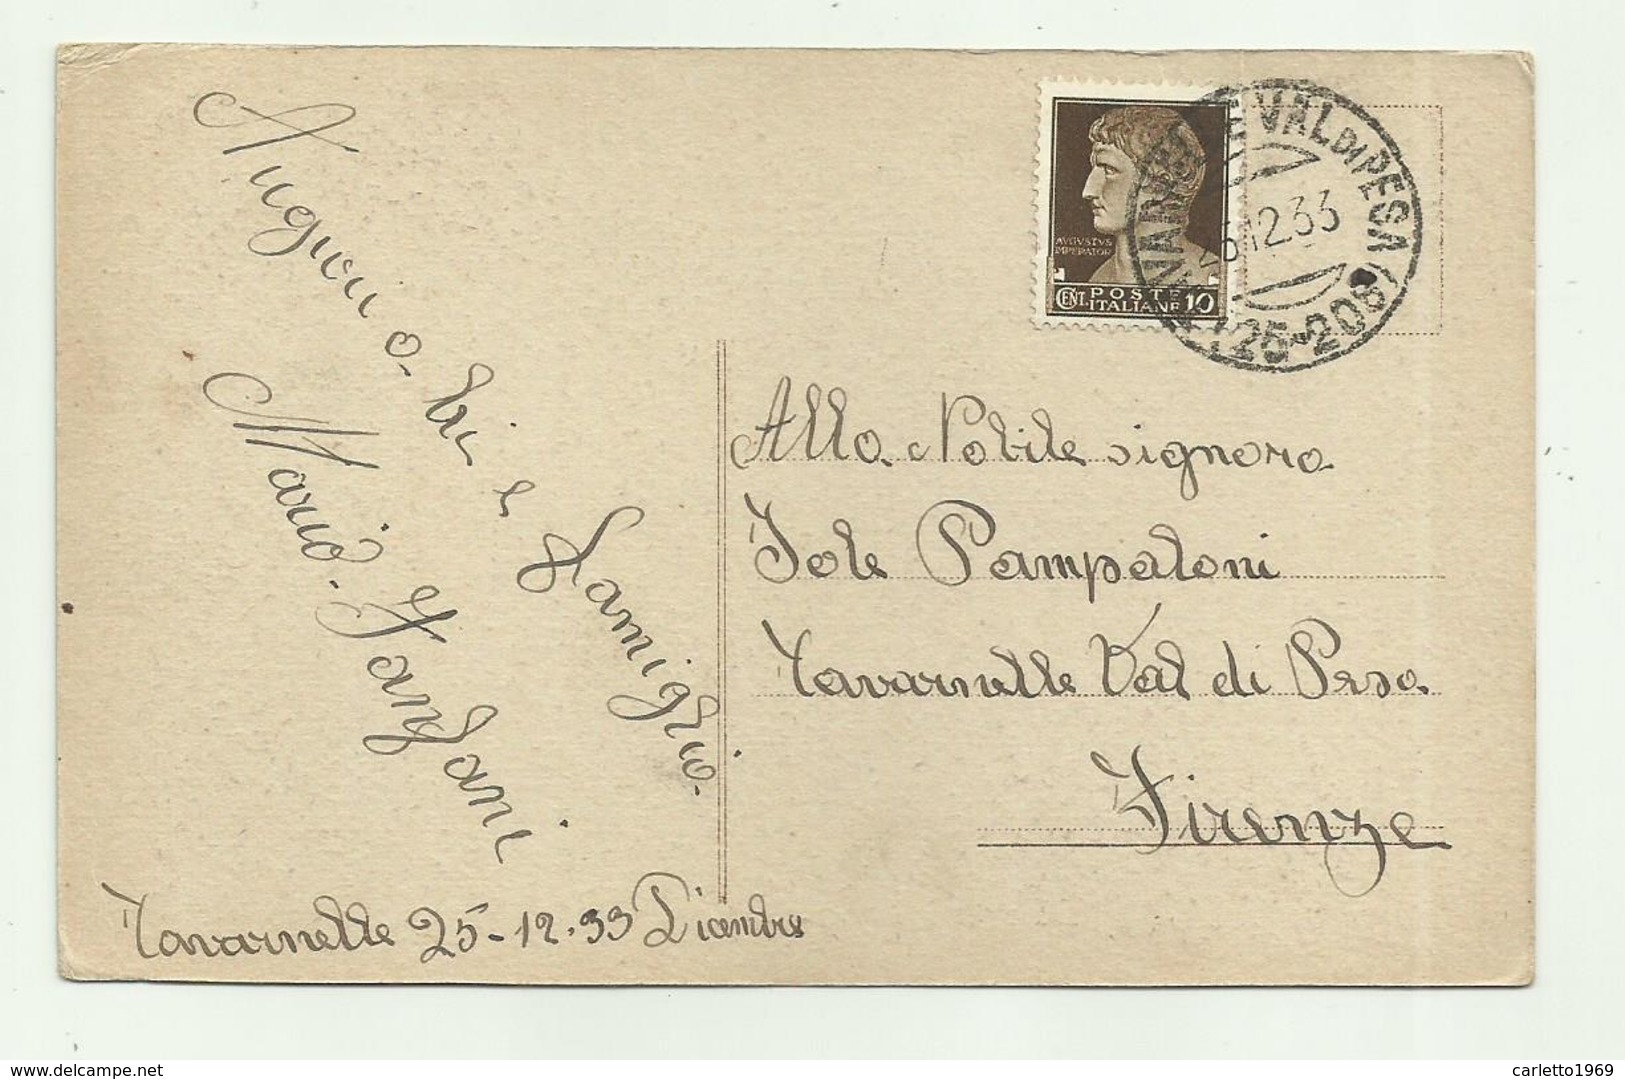 Auguri a lei e Famiglia.
Mario. Fanfani
Tavarnelle 25-12.33 Dicembre
AVGVSTVS
IMPERATOR
CENT. POSTE
ITALIANE 10
VAL DI PESA
12.33
Alla Nobile signora
Iole Pampaloni
Tavarnelle Val di Pesa
Firenze
www.delcampe.net
carletto1969